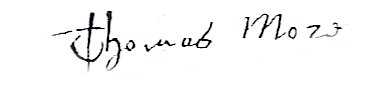 Thomas More